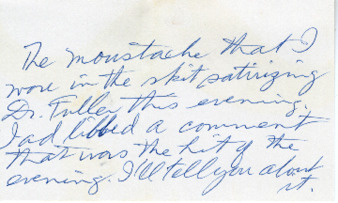 The moustache that I
wore in the skit satirizing
Dr. Fuller this evening.
I ad libbed a comment
that was the hit of the
evening. I'll tell you about
it.